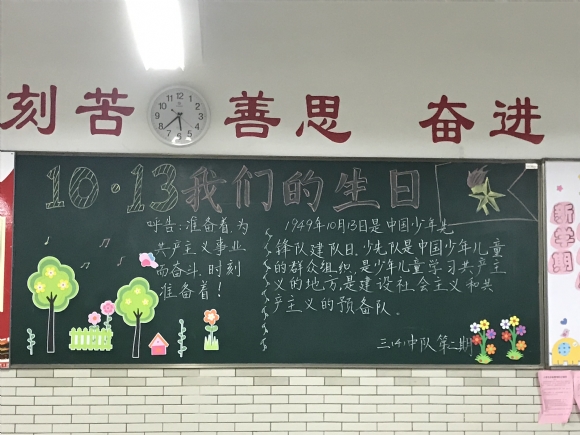 刻苦 善思 奋进
10·13我们的生日
呼告:准备着,为
共产主义事业
而奋斗,时刻
准备着!
1949年10月13日是中国少年先
锋队建队日,少先队是中国少年儿童
的群众组织,是少年儿童学习共产主
义的地方,是建设社会主义和共
产主义的预备队。
三(4)中队第二期
新学期
12
1
2
3
4
5
6
7
8
9
10
11